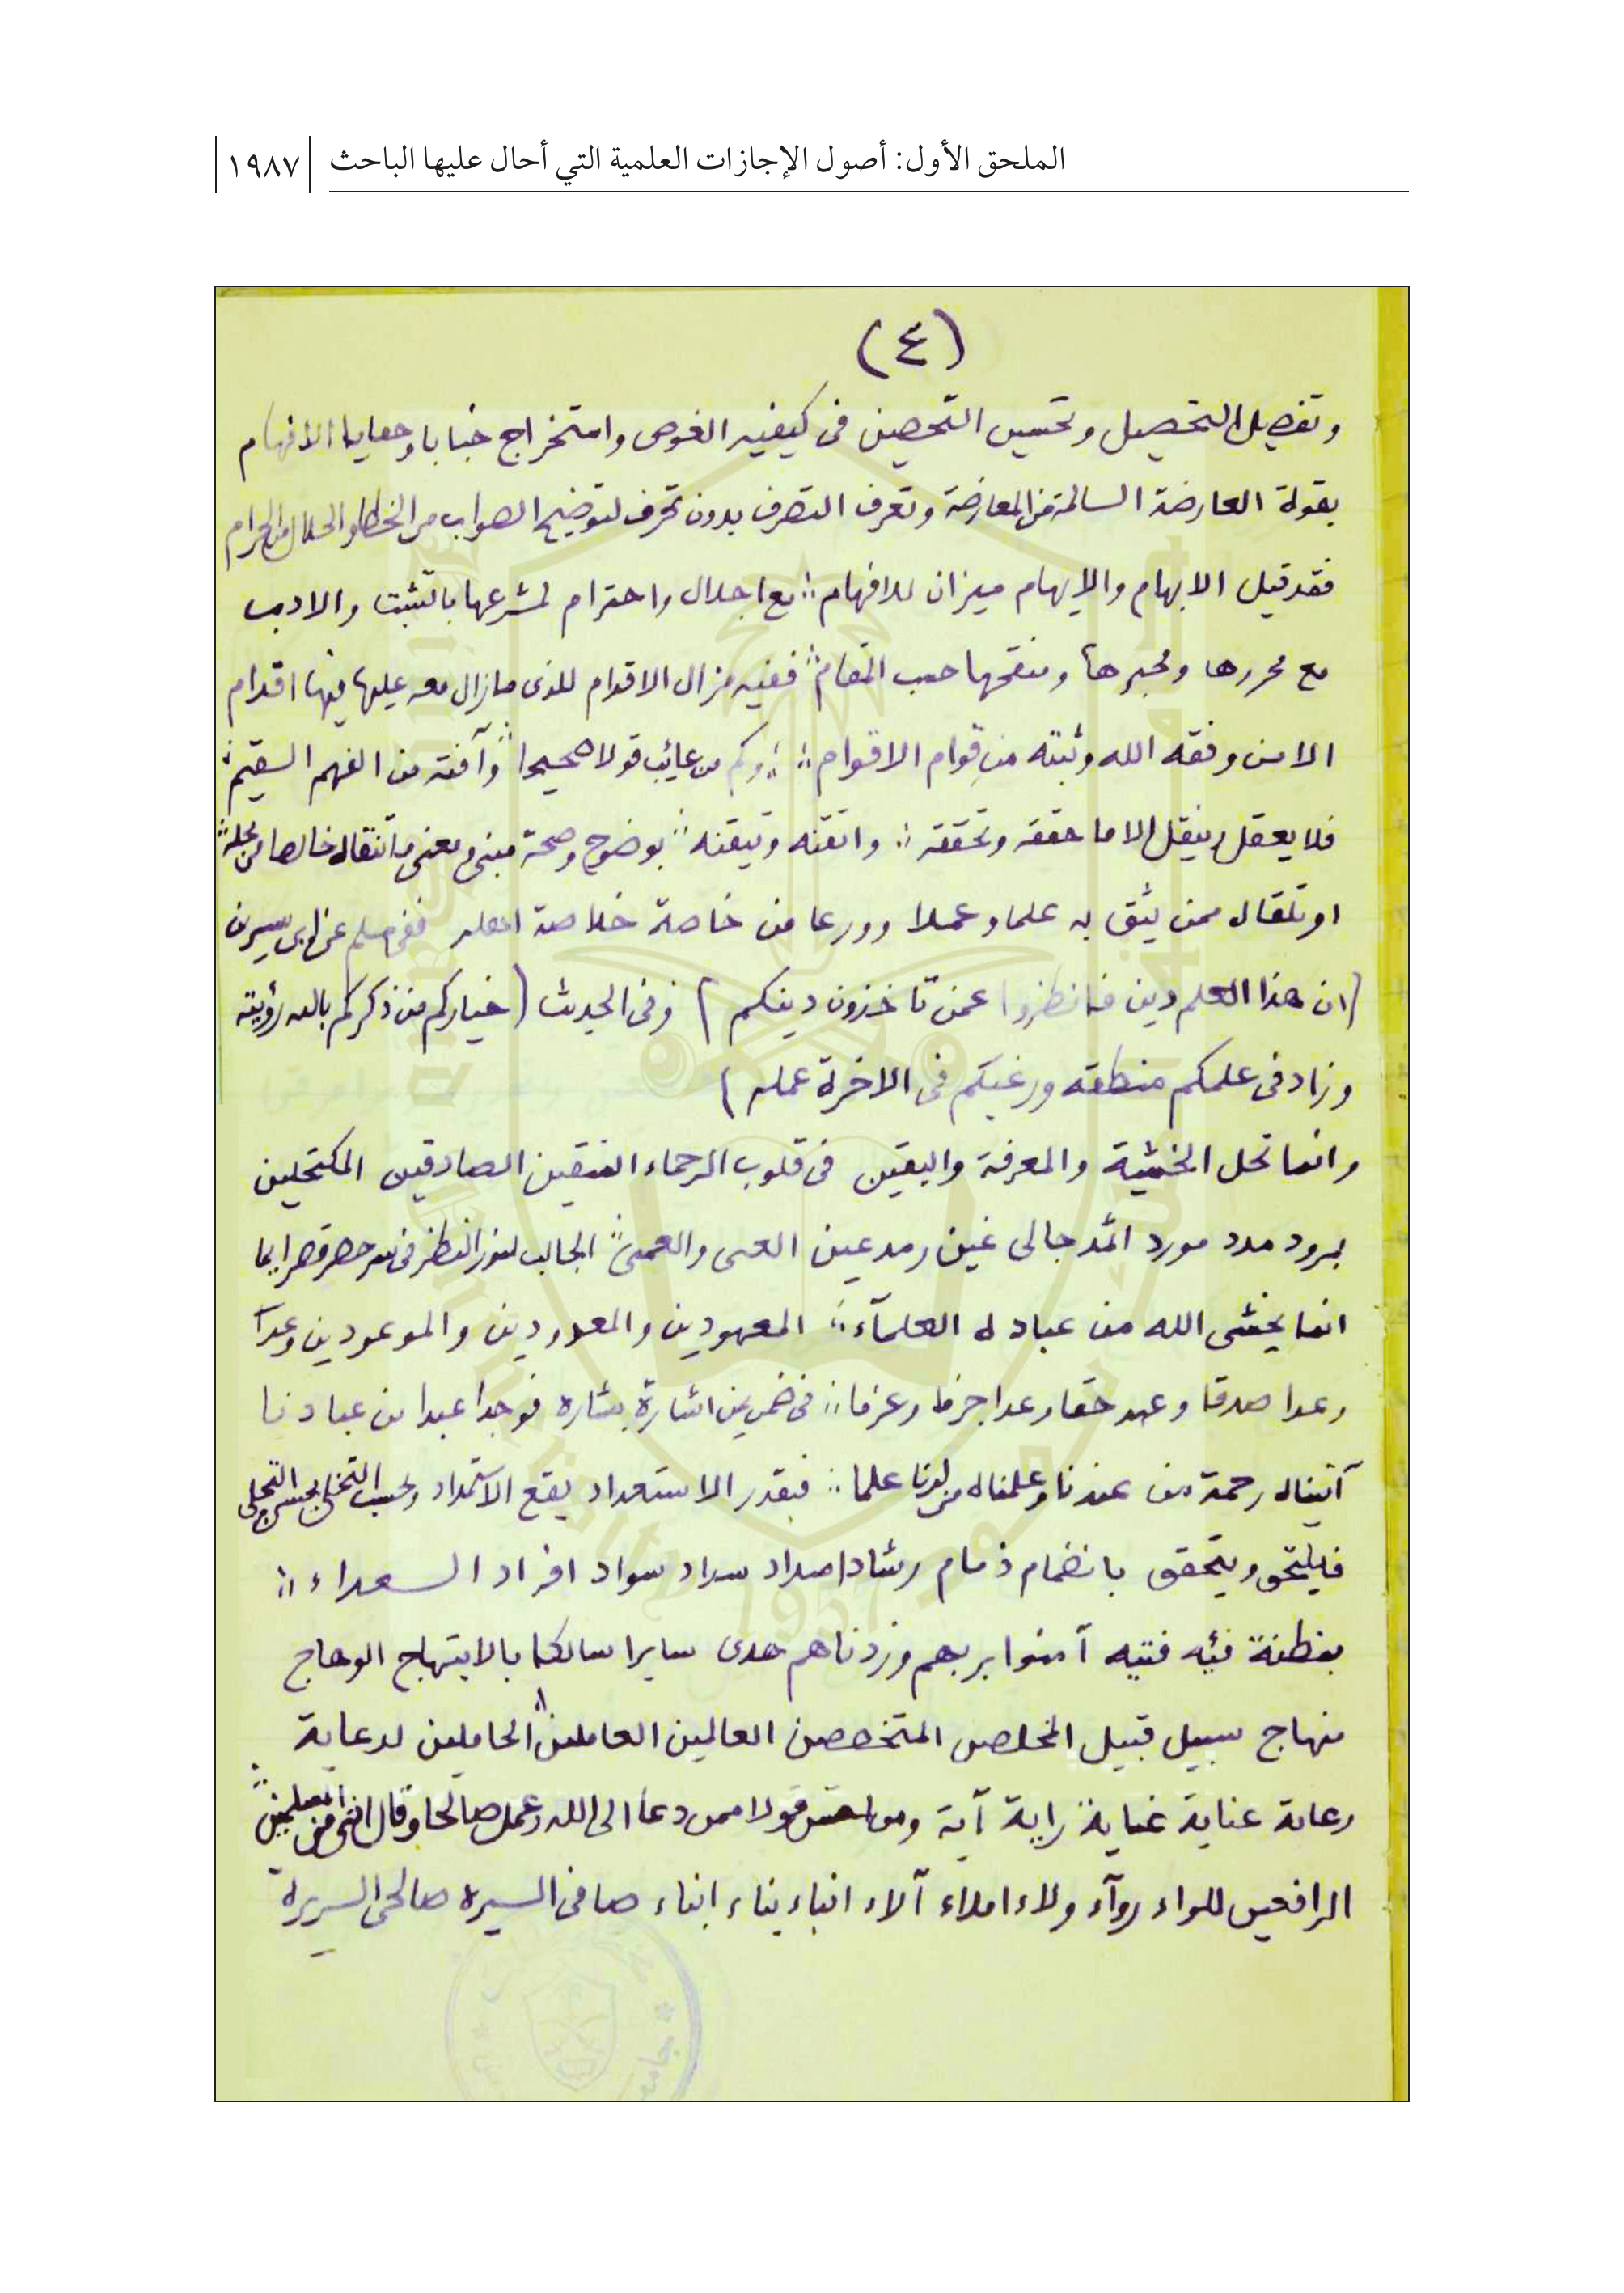 الملحق الأول: أصول الإجازات العلمية التي أحال عليها الباحث
١٩٨٧
(٤)
وتفصيل التحصيل وتحسين التحصين فى كيفيه الغوص واستخراج خبايا وحفايا الافهام
بقولة العارضة السالمة من المعارضة وتعرف التصرف بدون تحرف لتوضيح الصواب من الخطا والحلال من الحرام
فقد قيل الابهام والايهام ميزان للافهام مع اجلال واحترام لمشرعها بالتثبت والادب
مع محررها ومحبرها ومنقحها حسب المقام ففيه مزال الاقدام للذى مازال معه عليها فيها اقدام
الا من وفقه الله وثبته من قوام الاقوام وكم من عائب قولا صحيحا وآفته من الفهم السقيم
فلا يعقل وينقل الا ما حققه وتحققه واتقنه وتيقنه بوضوح وصحة مبنى ومعنى خالصا من
او تلقاه ممن يثق به علما وعملا وورعا من خاصة خلاصة اهله ففى مسلم عن ابن سيرين
(ان هذا العلم دين فانظروا عمن تأخذون دينكم) وفى الحديث (خياركم من ذكركم بالله رؤيته
وزاد فى علمكم منطقه ورغبكم فى الاخرة عمله)
وانما تحل الخشية والمعرفة واليقين فى قلوب الرحماء المتقين الصادقين المكتحلين
بمرود مدد مورد اثمد جالى غين رمد عين العى والعمى الجالب لنور النظر فى سر حصر قصر
انما يخشى الله من عباده العلمآء المعهودين والمعدودين والموعودين وعدا
وعدا صدقا وعهد حقا وعدا جزما وعزما فى ضمن اشارة بشاره فوجدا عبدا من عبادنا
آتيناه رحمة من عندنا وعلمناه من لدنا علما فبقدر الاستعداد يقع الاستمداد وبحسب التخلى يحسن التحلى
فيلتحق ويتحقق بانضمام ذمام رشاد امداد سداد سواد افراد السعداء
بفطنة فئه فتيه آمنوا بربهم وزدناهم هدى سايرا سالكا بالابتهاج الوهاج
منهاج سبيل قبيل المخلص المتخصصين العالمين العاملين الحاملين لدعاية
رعاية عناية غياية راية آية ومن احسن قولا ممن دعا الى الله وعمل صالحا وقال اننى من المسلمين
الرافعين للواء روآء ولاء املاء آلاء انباء بناء ابناء صافى السيره صالحى السريرة